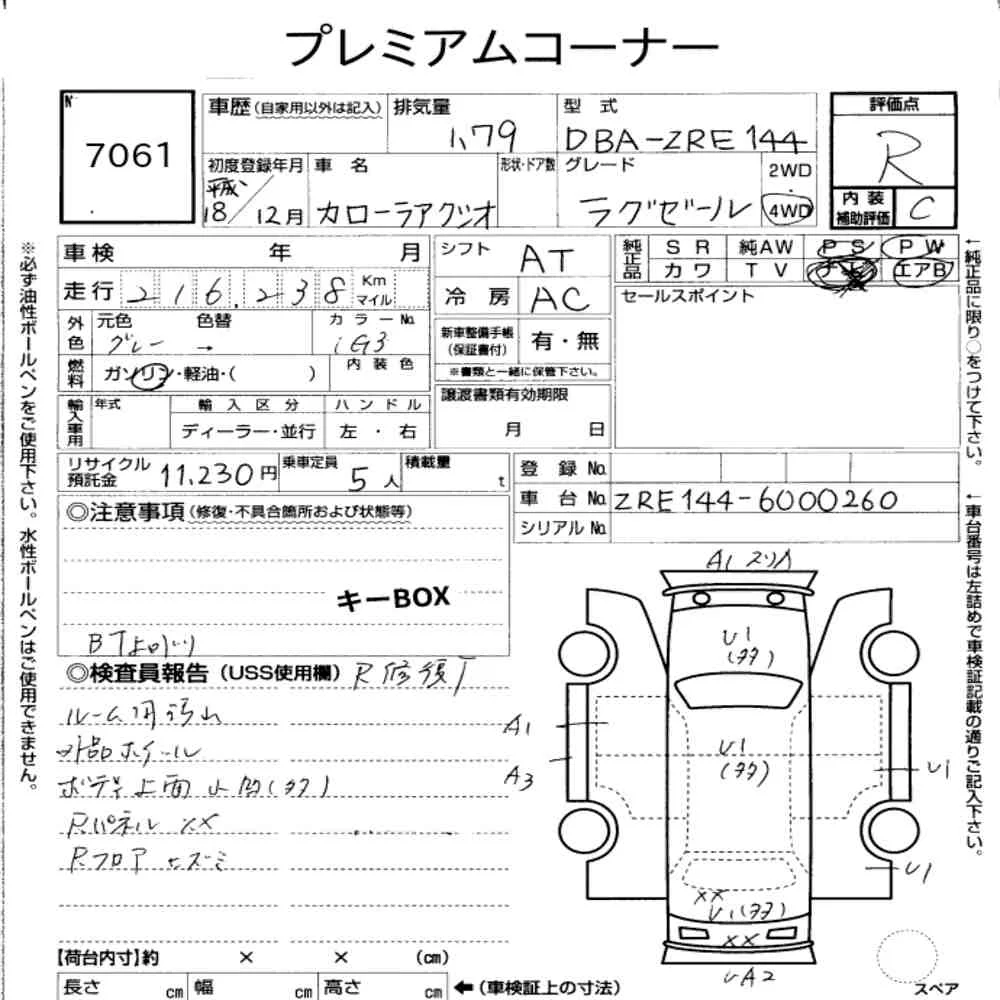 プレミアムコーナー
No 7061
車歴(自家用以外は記入) 排気量 1.79
型式 DBA-ZRE144
評価点 R
内装補助評価 C
初度登録年月 平成 18/12月
車名 カローラアクシオ
形状・ドア数
グレード ラグゼール
2WD
4WD
車検 年 月
走行 216,238 Km マイル
シフト AT
冷房 AC
純正品 SR 純AW PS PW
カワ TV ナビ エアB
外色 元色 グレー 色替 →
カラーNo. 1G3
新車整備手帳(保証書付) 有・無
※書類と一緒に保管下さい。
セールスポイント
燃料 ガソリン・軽油・( )
内装色
輸入車用 年式 輸入区分 ハンドル
ディーラー・並行 左・右
譲渡書類有効期限
月 日
リサイクル預託金 11,230円
乗車定員 5人
積載量 t
登録No.
車台No. ZRE144-6000260
シリアルNo.
◎注意事項(修復・不具合箇所および状態等)
キーBOX
◎検査員報告(USS使用欄) R修復
外品ホイール
ボディ上面 凹(タタ)
Rパネル XX
Rフロア ヒズミ
A1 スリ
U1
(タタ)
U1
(タタ)
A1
A3
U1
U1
XX
U1(タタ)
XX
UA2
【荷台内寸】約 × × (cm)
長さ cm 幅 cm 高さ cm ←(車検証上の寸法)
スペア
※必ず油性ボールペンをご使用下さい。水性ボールペンはご使用できません。
←純正品に限り○をつけて下さい。
←車台番号は左詰めで車検証記載の通りご記入下さい。